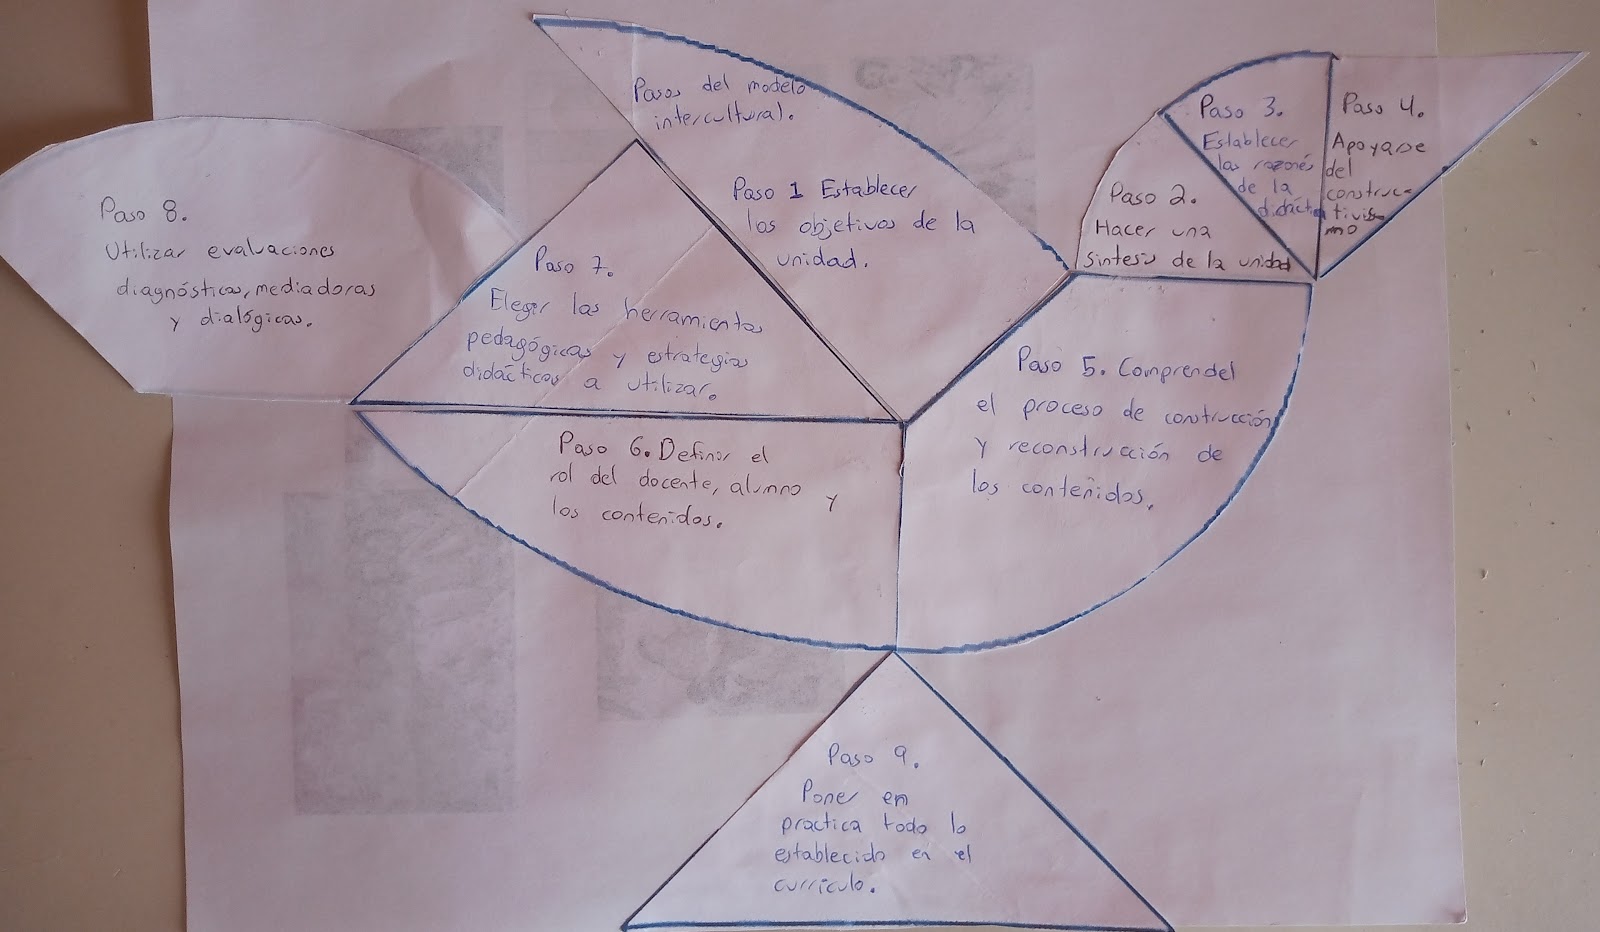 Pasos del modelo
intercultural.
Paso 1 Establecer
los objetivos de la
unidad.
Paso 2.
Hacer una
sintesis de la unidad
Paso 3.
Establecer
las razones
de la
didáctica
Paso 4.
Apoyarse
del
construc-
tivis
mo
Paso 5. Comprender
el proceso de construcción
y reconstrucción de
los contenidos.
Paso 6. Definir el
rol del docente, alumno y
los contenidos.
Paso 7.
Elegir las herramientas
pedagógicas y estrategias
didácticas a utilizar.
Paso 8.
Utilizar evaluaciones
diagnósticas, mediadoras
y dialógicas.
Paso 9.
Poner en
practica todo lo
establecido en el
currículo.